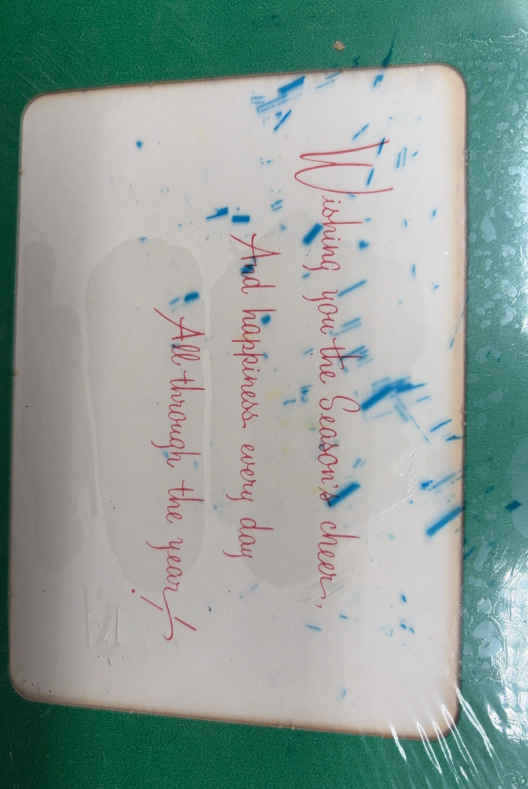 Wishing you the Season's cheer,
And happiness every day
All through the year!